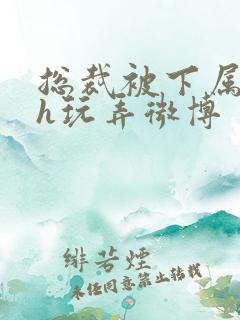 总裁被下属
h玩弄微博
绯若烟
未经同意禁止转载